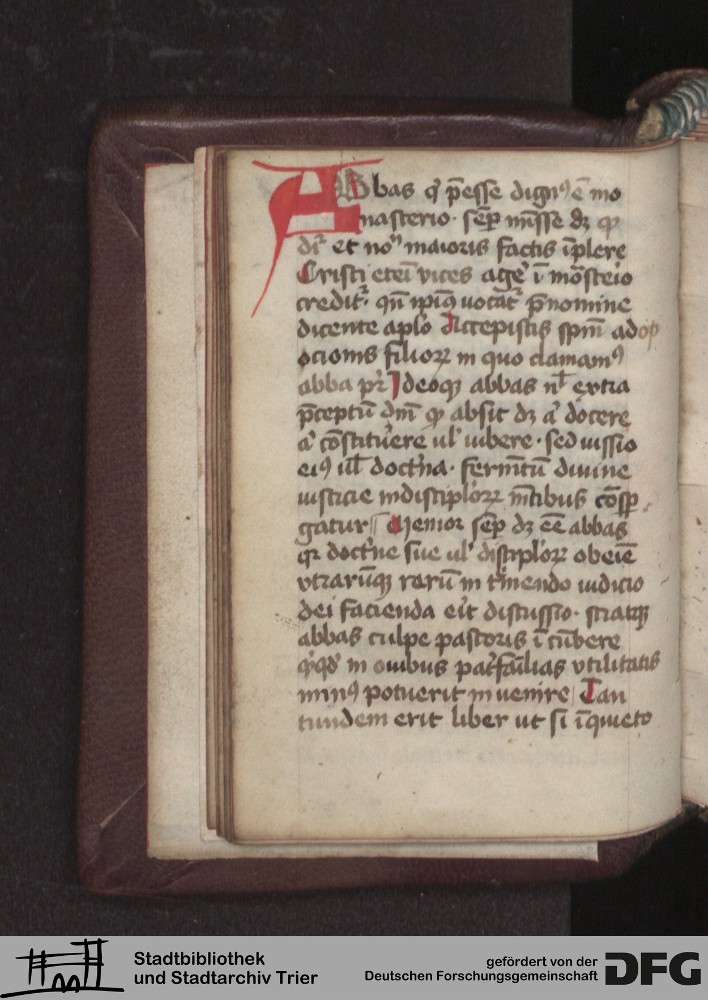 ABbas q̇ p̄esse dignꝰ ē mo
nasterio · sēp mīsse dꝫ qͥ
diͨ et noīͬ maioris factis īplere
Cristi eteī vices ageͬ ī mōsteio
crediͭͬ · qn̄ ipiꝰ uocatͬ p̄nomine
dicente aplō Accepistis spm̄ adop
ocionis filioꝝ in quo clamamꝰ
abba pr̄ Ideoqꝫ abbas nl̄ extra
p̄ceptū dn̄i qͩ absit dꝫ aͭ docere
aͭ cōstituere ul̓ iubere · sed iussio
eiꝰ ul̓ doctͥna · fermētū diuine
iusticie in discipl̓oꝝ mētibus cōsp
gatur Memor sēp dꝫ eē abbas
qꝛ doctͥne sue ul̓ discipl̓oꝝ obeiē
vtrarūqꝫ rerū in tͬmendo iudicio
dei facienda eͥt discussio · sciatqꝫ
abbas culpe pastoris īcūbere
qͥqͥd in ouibus patͬfāilias vtilitatis
minꝰ potuerit inuenire Tan
tundem erit liber ut si īquieto
Stadtbibliothek
und Stadtarchiv Trier
gefördert von der
Deutschen Forschungsgemeinschaft
DFG